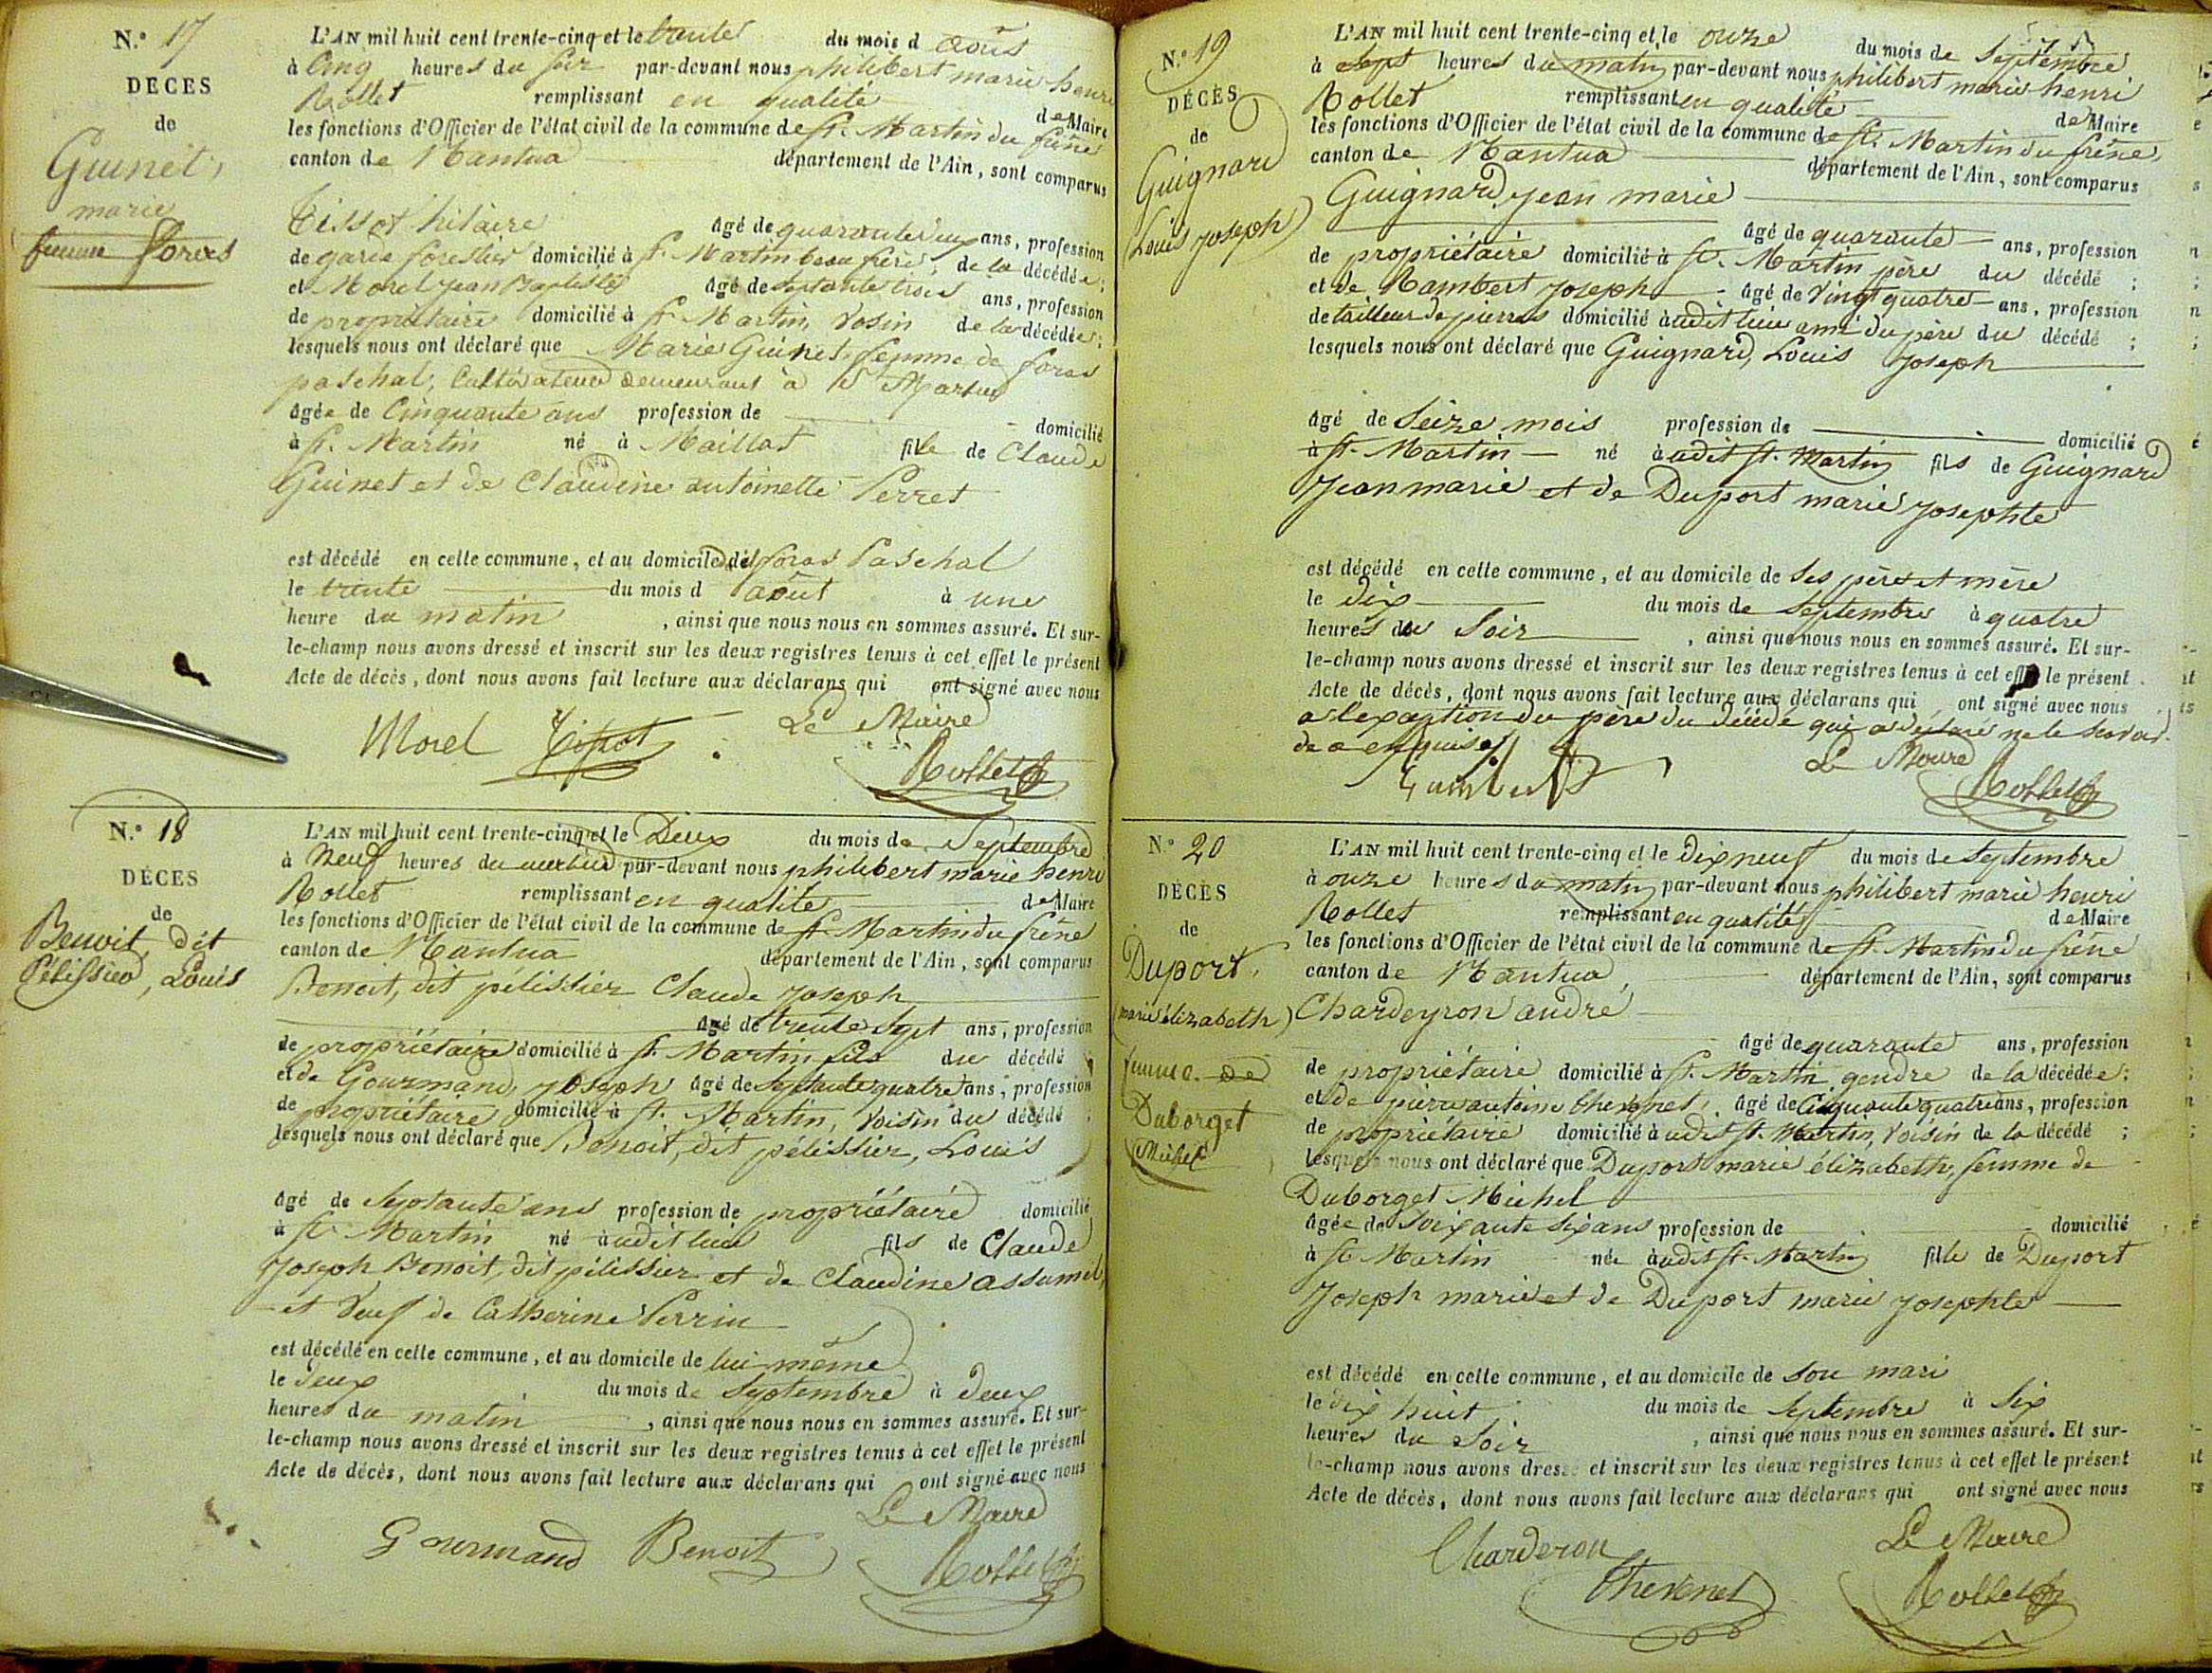 N.° 17
DÉCES
de
Guinet,
marie
femme Foras
L'AN mil huit cent trente-cinq et le trente du mois d août
à Cinq heures du soir par-devant nous philibert marie henri
Rollet remplissant en qualité de Maire
les fonctions d'Officier de l'état civil de la commune de St. Martin du frêne
canton de Nantua département de l'Ain, sont comparus
Tissot hilaire
âgé de ans, profession
de garde forestier domicilié à St. Martin beau frère de la décédée;
et Morel jean Baptiste âgé de septante trois ans, profession
de propriétaire domicilié à St. Martin, Vosin de la décédée;
lesquels nous ont déclaré que Marie Guinet, femme de foras
paschal, Cultivateur demeurant à St Martin
âgée de Cinquante ans profession de domicilié
à St. Martin né à Maillat fille de Claude
Guinet et de Claudine antoinette Perret
est décédé en cette commune, et au domicile de foras Paschal
le trente du mois d août à une
heure du matin, ainsi que nous nous en sommes assuré. Et sur-
le-champ nous avons dressé et inscrit sur les deux registres tenus à cet effet le présent
Acte de décès, dont nous avons fait lecture aux déclarans qui ont signé avec nous
Morel Tissot Le Maire
Rollet
N.° 18
DÉCES
de
Benoit, dit
Pélissier, Louis
L'AN mil huit cent trente-cinq et le Deux du mois de Septembre
à Neuf heures du matin par-devant nous philibert marie henri
Rollet remplissant en qualité de Maire
les fonctions d'Officier de l'état civil de la commune de St. Martin du frêne
canton de Nantua département de l'Ain, sont comparus
Benoit, dit pélissier Claude joseph
âgé de trente sept ans, profession
de propriétaire domicilié à St. Martin fils du décédé
et de Gourmand, joseph âgé de septante quatre ans, profession
de propriétaire domicilié à St. Martin, Voisin du décédé;
lesquels nous ont déclaré que Benoit, dit pélissier, Louis
âgé de Septante ans profession de propriétaire domicilié
à St Martin né à udit lieu fils de Claude
Joseph Benoit, dit pélissier et de Claudine assumel,
et Veuf de Catherine Perrin
est décédé en cette commune, et au domicile de lui même
le deux du mois de Septembre à deux
heures du matin, ainsi que nous nous en sommes assuré. Et sur-
le-champ nous avons dressé et inscrit sur les deux registres tenus à cet effet le présent
Acte de décès, dont nous avons fait lecture aux déclarans qui ont signé avec nous
Le Maire
Gourmand Benoit Rollet
N.° 19
DÉCÈS
de
Guignard
(Louis Joseph)
L'AN mil huit cent trente-cinq et le onze du mois de Septembre
à Sept heures du matin par-devant nous philibert marie henri
Rollet remplissant en qualité de Maire
les fonctions d'Officier de l'état civil de la commune de St. Martin du frêne,
canton de Nantua département de l'Ain, sont comparus
Guignard, jean marie
âgé de quarante ans, profession
de propriétaire domicilié à St. Martin père du décédé;
et de Rambert joseph âgé de Vingt quatre ans, profession
de tailleur de pierres domicilié à udit lieu ami du père du décédé;
lesquels nous ont déclaré que Guignard, Louis Joseph
âgé de Seize mois profession de domicilié
à St. Martin né à udit St. Martin fils de Guignard
Jean marie et de Duport marie josephte
est décédé en cette commune, et au domicile de ses père et mère
le dix du mois de Septembre à quatre
heures du Soir, ainsi que nous nous en sommes assuré. Et sur-
le-champ nous avons dressé et inscrit sur les deux registres tenus à cet effet le présent
Acte de décès, dont nous avons fait lecture aux déclarans qui ont signé avec nous
a l'exception du père du décédé qui a déclaré ne le savoir
de ce enquis
Le Maire
Rollet
N.° 20
DÉCÈS
de
Duport,
(marie élizabeth)
femme de
Duborget
Michel
L'AN mil huit cent trente-cinq et le dix neuf du mois de Septembre
à onze heures du matin par-devant nous philibert marie henri
Rollet remplissant en qualité de Maire
les fonctions d'Officier de l'état civil de la commune de St. Martin du frêne
canton de Nantua, département de l'Ain, sont comparus
Chardeyron andré
âgé de quarante ans, profession
de propriétaire domicilié à St. Martin gendre de la décédée;
et de pierre antoine thevenet, âgé de Cinquante quatre ans, profession
de propriétaire domicilié à udit St. Martin, Voisin de la décédé;
lesquels nous ont déclaré que Duport marie élizabeth, femme de
Duborget Michel
âgée de Soixante six ans profession de domicilié
à St Martin née à udit St. Martin fille de Duport
Joseph marie et de Duport marie josephte
est décédé en cette commune, et au domicile de son mari
le dix huit du mois de Septembre à Six
heures du Soir, ainsi que nous nous en sommes assuré. Et sur-
le-champ nous avons dressé et inscrit sur les deux registres tenus à cet effet le présent
Acte de décès, dont nous avons fait lecture aux déclarans qui ont signé avec nous
Charderon Le Maire
Thevenet Rollet